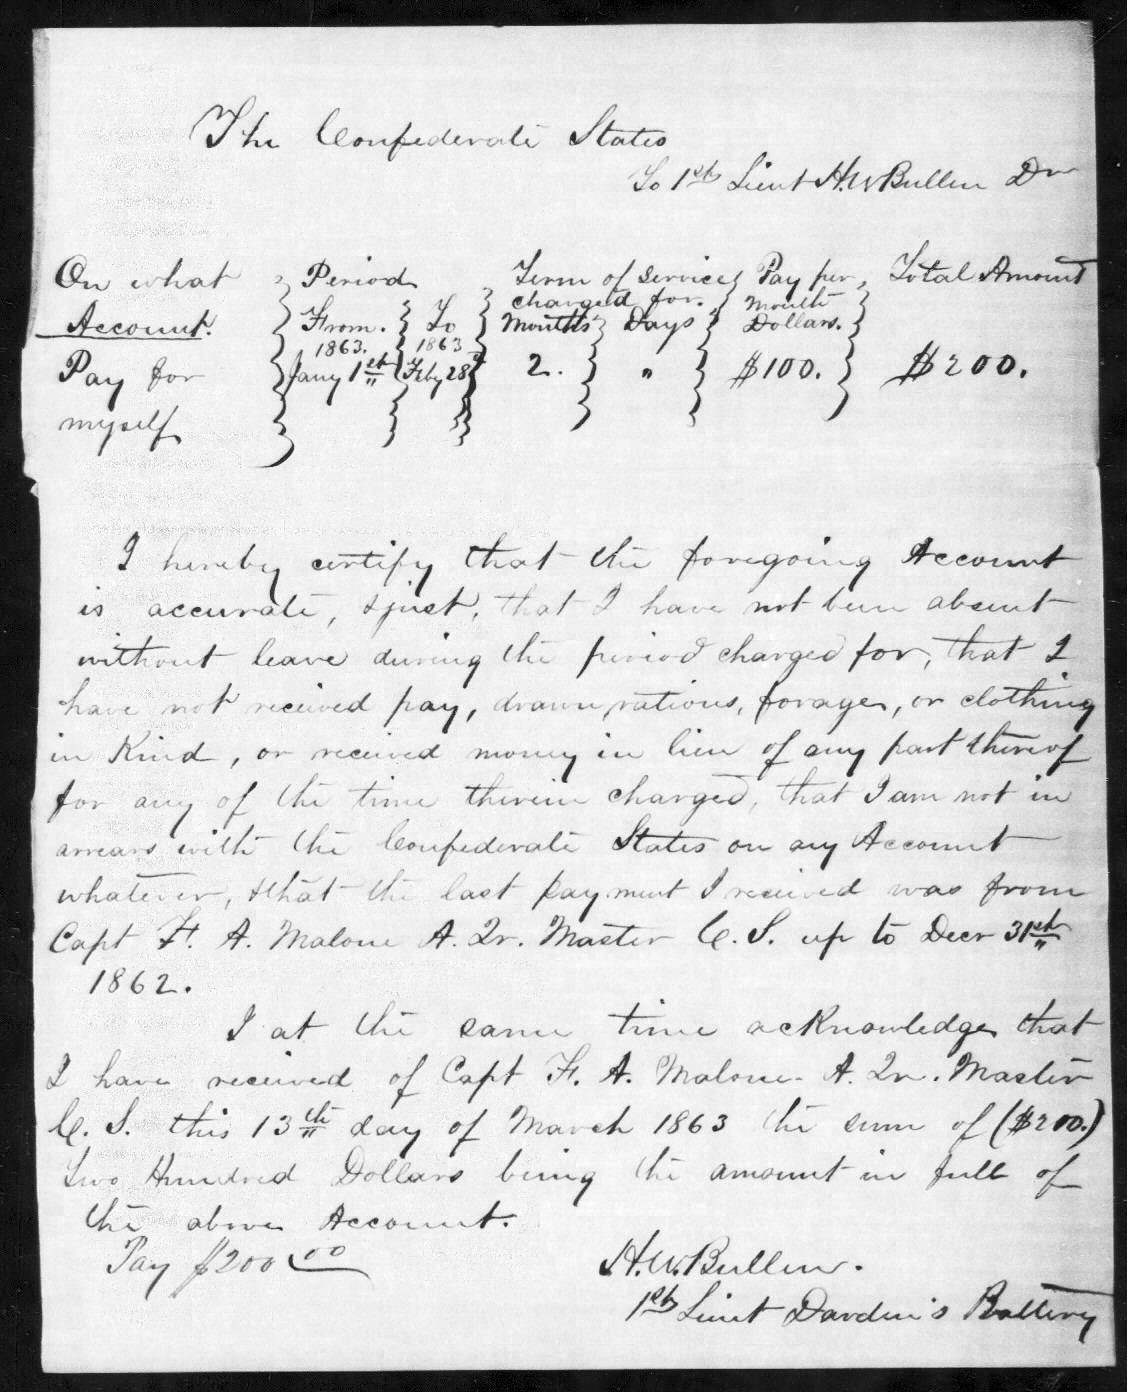 The Confederate States
To 1st Lieut H.W. Bullen Dr
On what Period Term of Service Pay per Total Amount
charged for. Month
Account. From. To Months Days Dollars.
1863. 1863
Pay for Jany 1st Feby 28th 2. " $100. $200.
myself
I hereby certify that the foregoing Account
is accurate, & just, that I have not been absent
without leave during the period charged for, that I
have not received pay, drawn rations, forage, or clothing
in Kind, or received money in lieu of any part thereof
for any of the time therein charged, that I am not in
arrears with the Confederate States on any Account
whatever, & that the last payment I received was from
Capt F. A. Malone A. Qr. Master C. S. up to Decr 31st
1862.
I at the same time acknowledge that
I have received of Capt F. A. Malone A. Qr. Master
C. S. this 13th day of March 1863 the sum of ($200.)
Two Hundred Dollars being the amount in full of
the above Account.
Pay $200 00 H.W. Bullen.
1st Lieut Darden's Battery